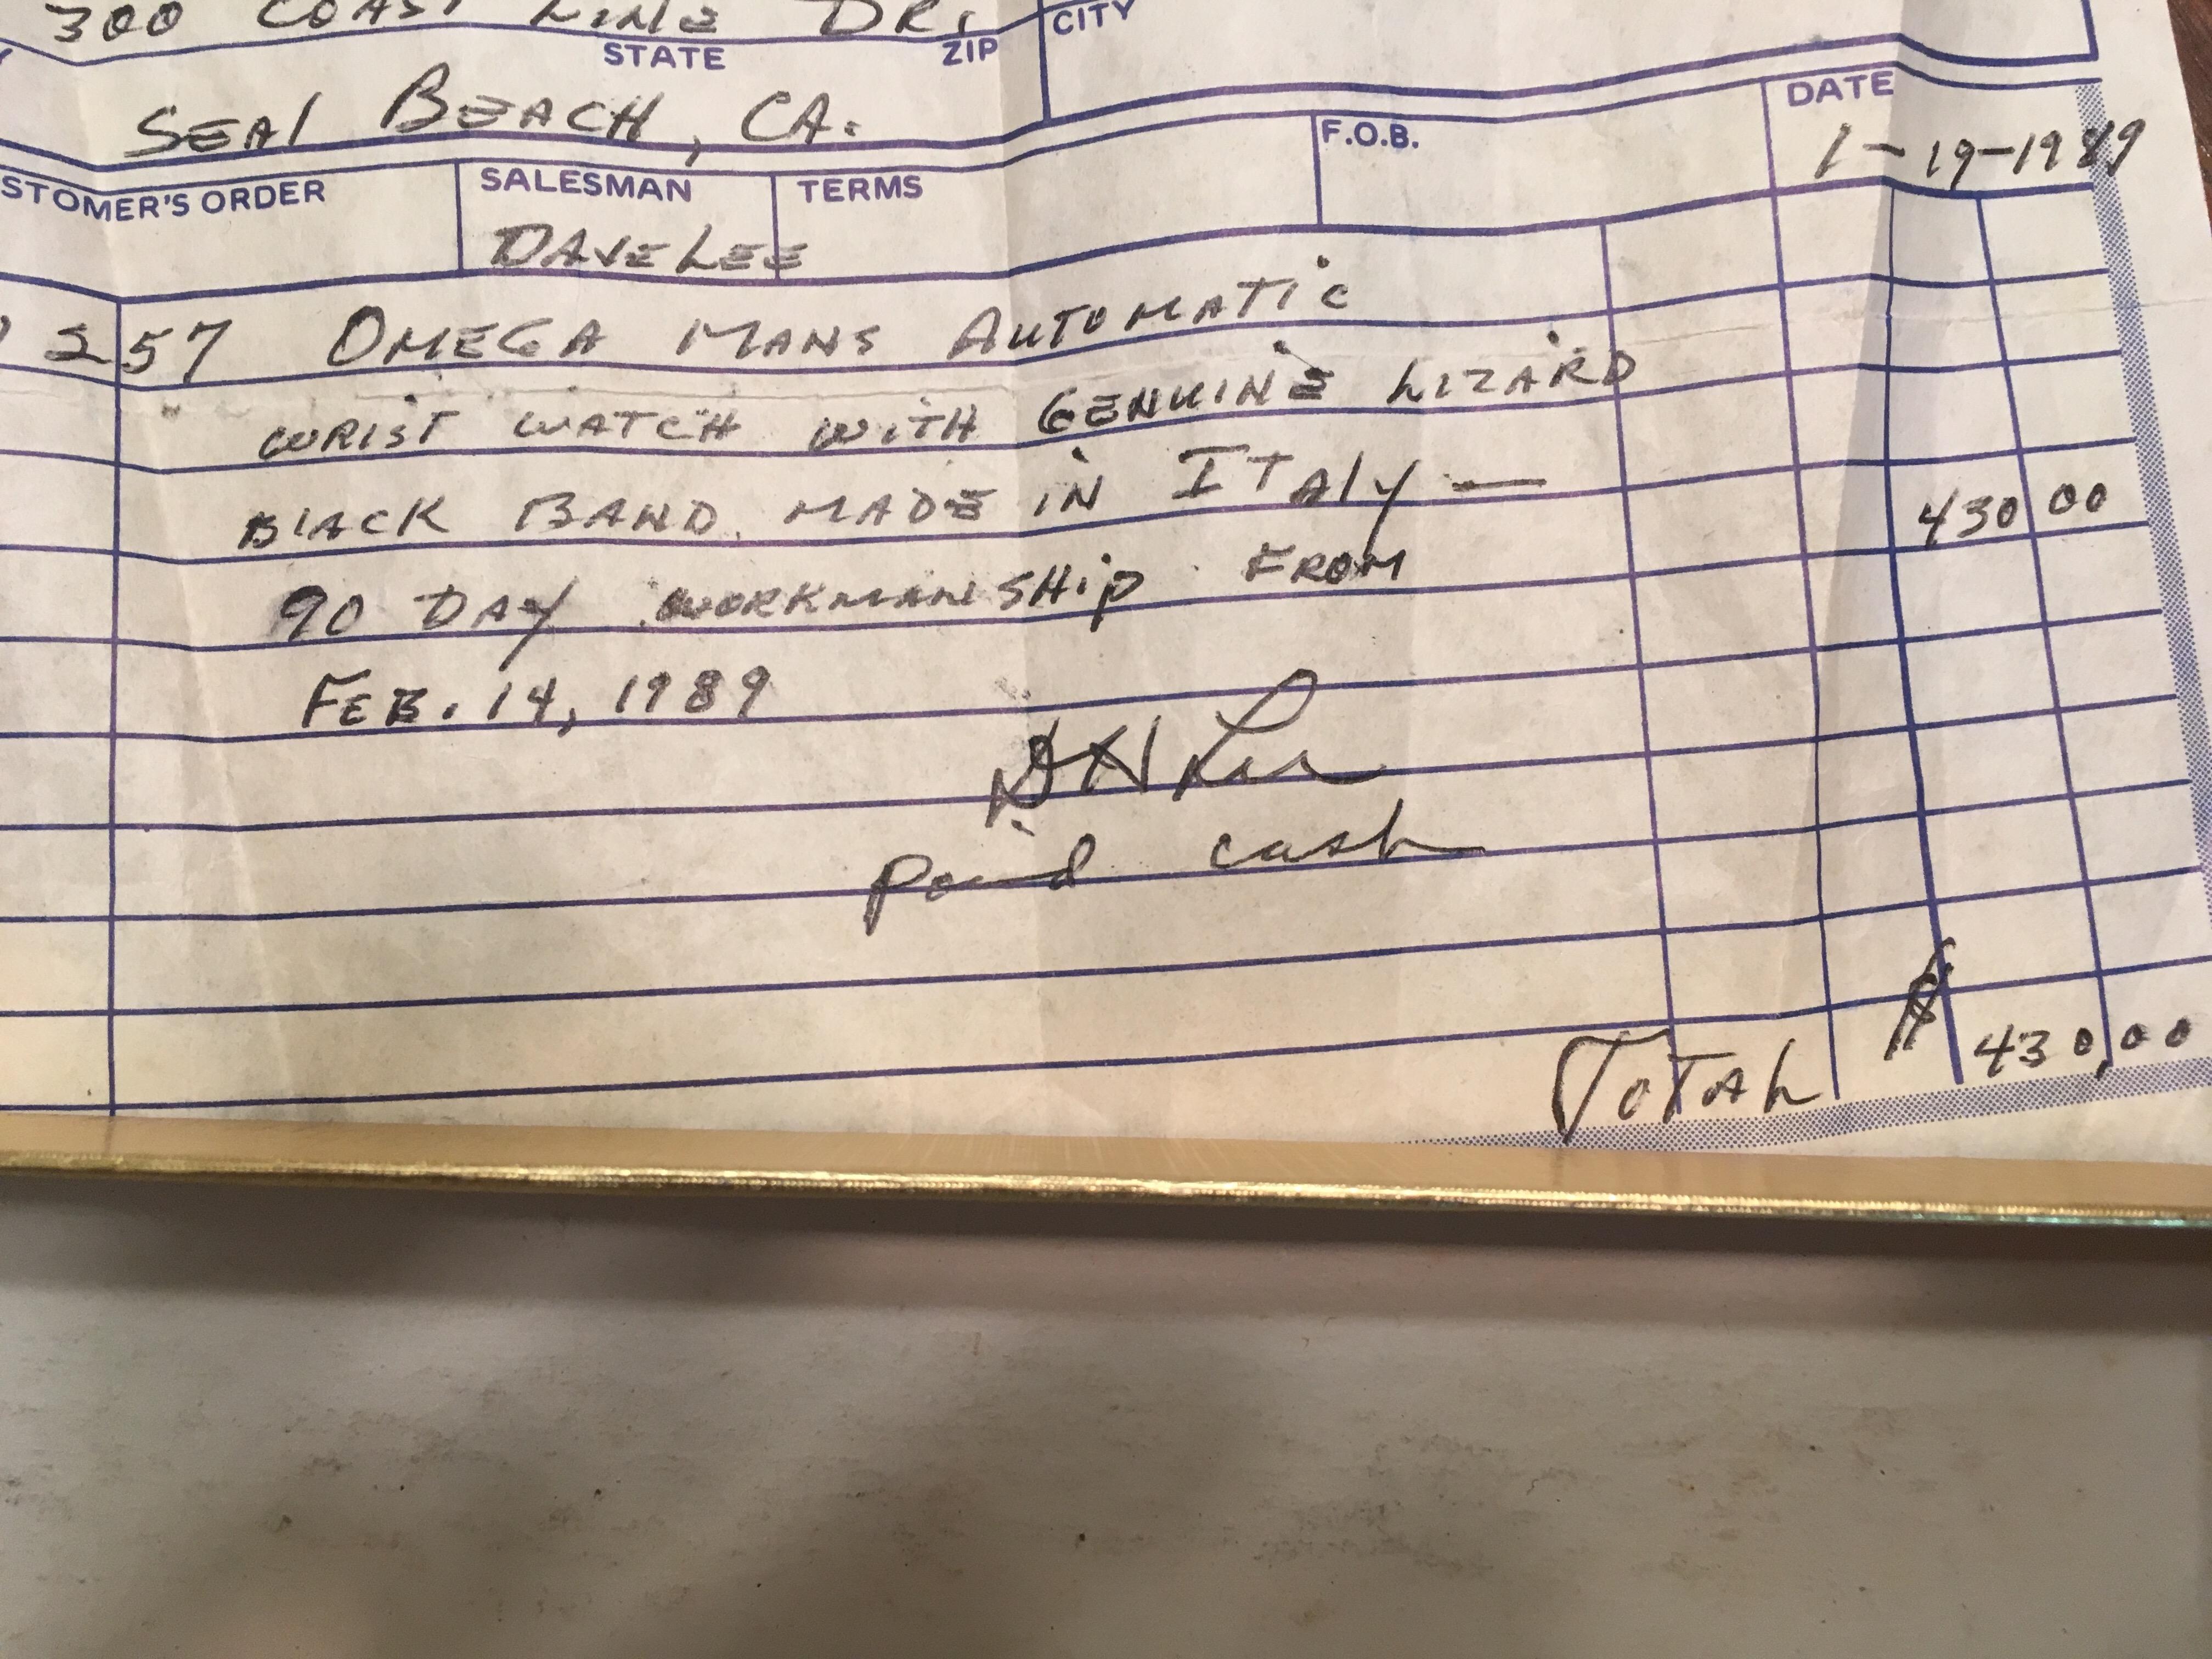 300 COAST LINE DR.
STATE ZIP CITY
SEAL BEACH, CA.
STOMER'S ORDER SALESMAN TERMS F.O.B. DATE
DAVE LEE 1-19-1989
257 OMEGA MANS AUTOMATIC
WRIST WATCH WITH GENUINE LIZARD
BLACK BAND MADE IN ITALY — 430 00
90 DAY WORKMANSHIP FROM
FEB. 14, 1989
D H Lee
paid cash
TOTAL $ 430.00